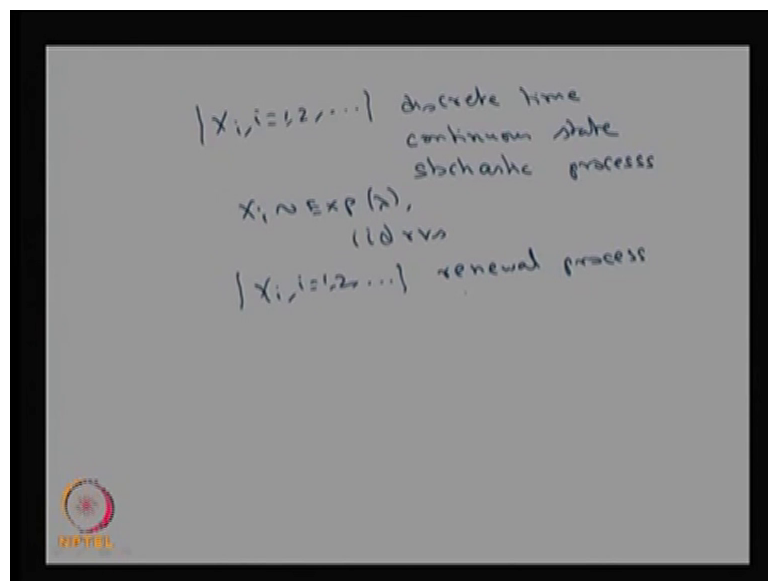 {X_i, i=1,2,...} discrete time
continuous state
stochastic processs
X_i ~ Exp(λ),
iid rvs
{X_i, i=1,2,...} renewal process
NPTEL